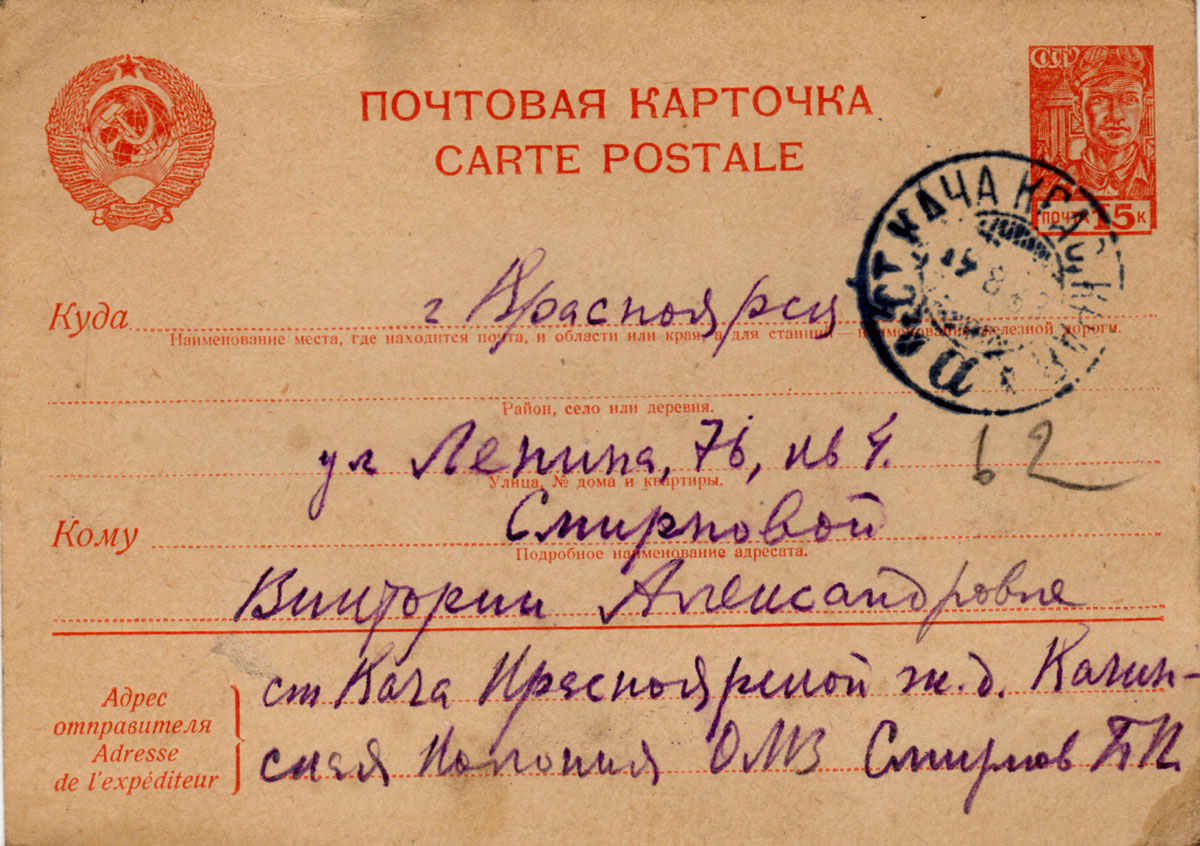 ПОЧТОВАЯ КАРТОЧКА
CARTE POSTALE
СССР
ПОЧТА 15 К
СТ КАЧА
19 8
Куда г Красноярск
Наименование места, где находится почта, и области или края, а для станции — наименование железной дороги.
Район, село или деревня.
ул Ленина, 76, кв 4.
Улица, № дома и квартиры.
62
Кому Смирновой
Подробное наименование адресата.
Виктории Александровне
Адрес отправителя
Adresse de l'expéditeur
ст Кача Красноярской ж.д. Качин-
ская Колония ОМЗ Смирнов Б.П.